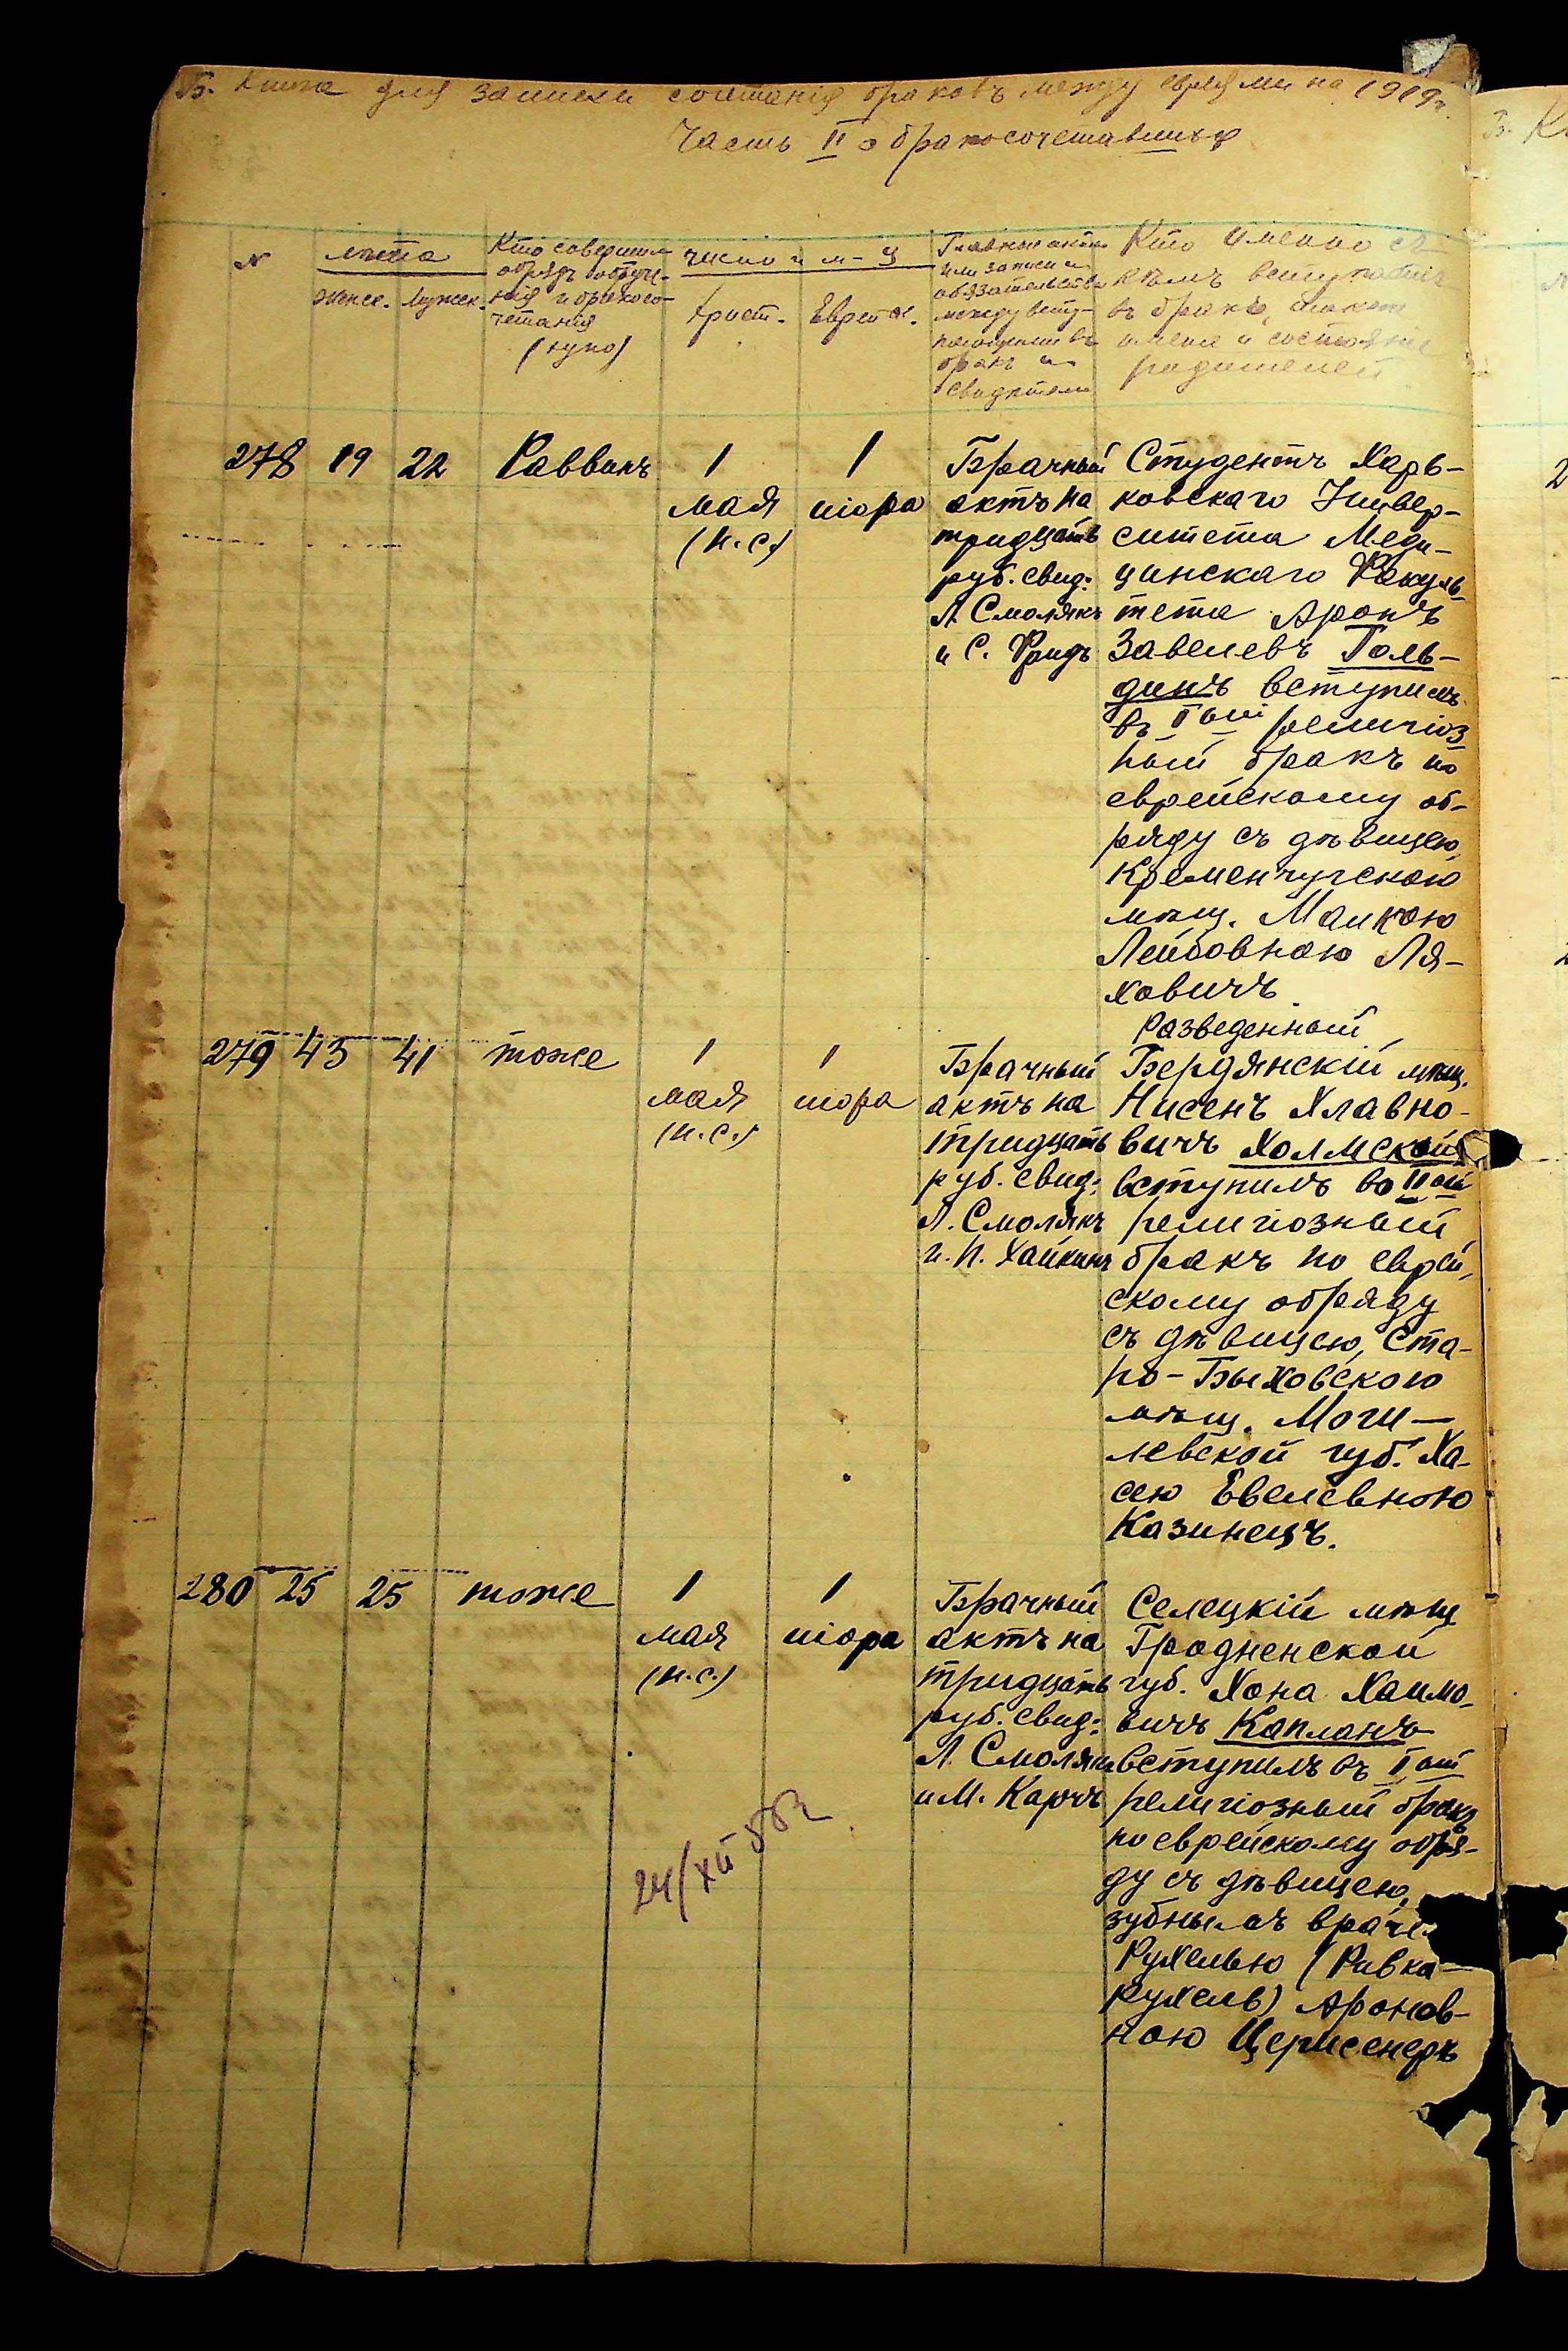 Б. Книга для записи сочетанія браковъ между евреями на 1919г.
Часть II о бракосочетавшихся
№
лета
Женск. Мужск.
Кто совершил
обрядъ обруче-
нія и бракосо-
четанія
(хупо)
число и м-ц
Христ. Еврейск.
Главные акты
или записи и
обязательства
между всту-
пающими въ
бракъ и
свидетели
Кто именно съ
кѣмъ вступаетъ
въ бракъ, также
имена и состояніе
родителей
278 19 22 Раввинъ
1
мая
(н.с.)
1
шора
Брачный
актъ на
тридцать
руб. свид:
Л. Смолякъ
и С. Фридъ
Студентъ Харь-
ковскаго Универ-
ситета Меди-
цинскаго Факуль-
тета Аронъ
Завелевъ Голь-
динъ вступилъ
въ Iый религіоз
ный бракъ по
еврейскому об-
ряду съ дѣвицею,
Кременчугскою
мѣщ. Малкою
Лейбовною Ля-
ховичъ
279 43 41 тоже
1
мая
(н.с.)
1
шора
Брачный
актъ на
тридцать
руб. свид:
Л. Смолякъ
и Н. Хайкинъ
Разведенный,
Бердянскій мѣщ.
Нисенъ Хлавно-
вичъ Холмской
вступилъ во IIой
религіозный
бракъ по еврей,
скому обряду
съ дѣвицею, Ста-
ро-Быховскою
мѣщ. Моги-
левской губ. Ха-
сею Евелевною
Казинецъ.
280 25 25 тоже
1
мая
(н.с.)
1
шора
Брачный
актъ на
тридцать
руб. свид:
Л. Смолякъ
и М. Карчъ
Селецкій мѣщ
Гродненской
губ. Хона Хаимо-
вичъ Капланъ
вступилъ въ Iый
религіозный бракъ
по еврейскому обря-
ду съ дѣвицею,
зубнымъ враче
Рухелью (Ривка-
Рухель) Аронов-
ною
24/XII